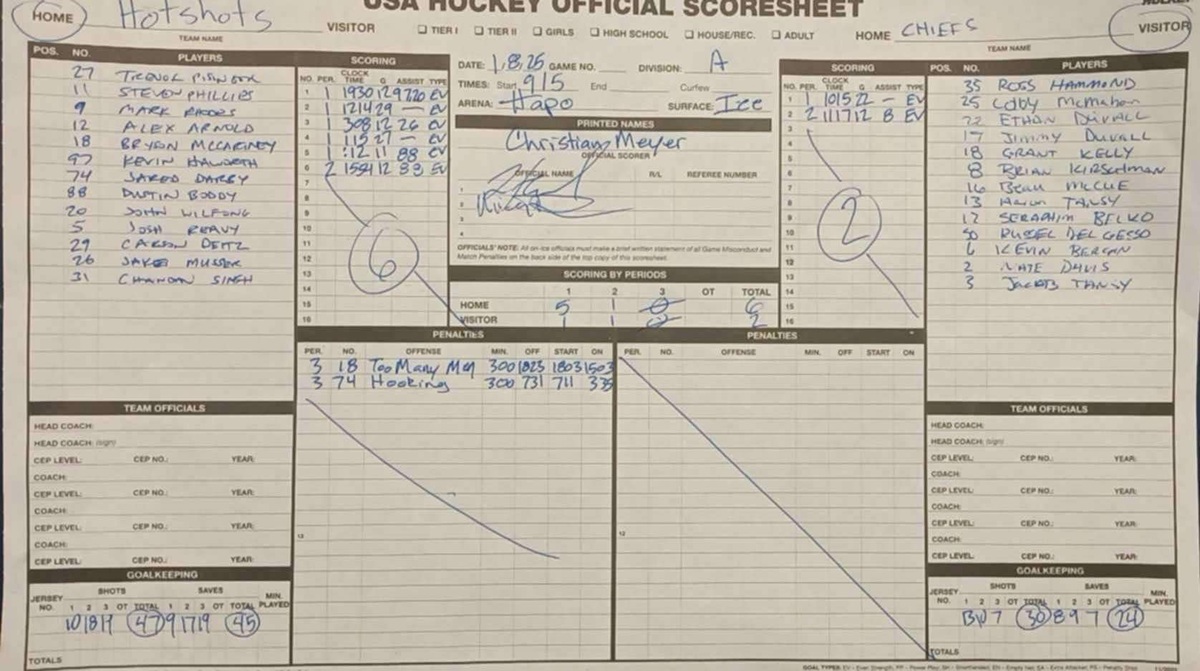 USA HOCKEY OFFICIAL SCORESHEET
HOME Hotshots VISITOR
TEAM NAME
☐ TIER I ☐ TIER II ☐ GIRLS ☐ HIGH SCHOOL ☐ HOUSE/REC. ☐ ADULT
HOME CHIEFS VISITOR
TEAM NAME
POS. NO. PLAYERS
27 TREVOR
11 STEVEN PHILLIPS
9 MARK RHODES
12 ALEX ARNOLD
18 BRYON MCCARTNEY
97 KEVIN HAWORTH
74 JARED DARBY
88 DUSTIN BODDY
20 JOHN WILFONG
5 JOSH REAVY
29 CARSON DEITZ
26 JAKOB MUSSER
31 CHANDAN SINGH
SCORING
NO. PER. CLOCK TIME G ASSIST TYPE
1 1 1930 12 97 20 EV
2 1 1214 29 — EV
3 1 308 12 26 EV
4 1 115 27 — EV
5 1 :12 11 88 EV
6 2 1554 12 88 EV
7
8
9
10
11
12
13
14
15
16
6
DATE: 1,8,25 GAME NO. DIVISION: A
TIMES: Start 915 End Curfew
ARENA: Hapo SURFACE: Ice
PRINTED NAMES
Christian Meyer
OFFICIAL SCORER
OFFICIAL NAME R/L REFEREE NUMBER
1
2
3
4
OFFICIALS' NOTE: All on-ice officials must make a brief written statement of all Game Misconduct and
Match Penalties on the back side of the top copy of this scoresheet.
SCORING BY PERIODS
1 2 3 OT TOTAL
HOME 5 1 0 6
VISITOR 1 1 0 2
SCORING
NO. PER. CLOCK TIME G ASSIST TYPE
1 1 1015 22 — EV
2 2 1117 12 8 EV
3
4
5
6
7
8
9
10
11
12
13
14
15
16
2
POS. NO. PLAYERS
35 ROSS HAMMOND
25 Colby McMahon
22 ETHAN DUVALL
17 Jimmy DUVALL
18 GRANT KELLY
8 BRIAN KIRSCHMAN
16 Beau MCCUE
13 TANSY
12 SERAPHIM BELKO
50 RUSSEL DEL GESSO
6 KEVIN BERGAN
2 NATE DAVIS
3 JACOB TANSY
PENALTIES
PER. NO. OFFENSE MIN. OFF START ON
3 18 Too Many Men 300 1823 1803 1503
3 74 Hooking 300 731 711 335
12
PENALTIES
PER. NO. OFFENSE MIN. OFF START ON
12
TEAM OFFICIALS
HEAD COACH:
HEAD COACH: (sign)
CEP LEVEL: CEP NO.: YEAR:
COACH:
CEP LEVEL: CEP NO.: YEAR:
COACH:
CEP LEVEL: CEP NO.: YEAR:
COACH:
CEP LEVEL: CEP NO.: YEAR:
GOALKEEPING
JERSEY NO. SHOTS SAVES MIN. PLAYED
1 2 3 OT TOTAL 1 2 3 OT TOTAL
10 18 19 47 9 17 19 45
TOTALS
TEAM OFFICIALS
HEAD COACH:
HEAD COACH: (sign)
CEP LEVEL: CEP NO.: YEAR:
COACH:
CEP LEVEL: CEP NO.: YEAR:
COACH:
CEP LEVEL: CEP NO.: YEAR:
COACH:
CEP LEVEL: CEP NO.: YEAR:
GOALKEEPING
JERSEY NO. SHOTS SAVES MIN. PLAYED
1 2 3 OT TOTAL 1 2 3 OT TOTAL
13 10 7 30 8 9 7 24
TOTALS